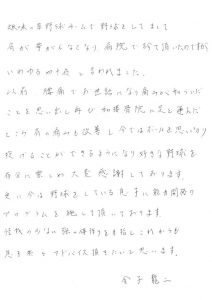 趣味の草野球チームで野球をしてまして
肩が挙がらなくなり、病院で診て頂いたのですが
いわゆる四十肩と言われました。
以前、腰痛でお世話になり痛みが和らいだ
ことを思い出し再び和接骨院に足を運んだ
ところ肩の痛みも改善し今ではボールを思いっきり
投げることができるようになり好きな野球を
存分に楽しめ大変感謝しております。
更に今は野球をしている息子に動き
プログラムを施して頂いております。
怪我の少ない強い体作りを目指しこれからも
息子共々アドバイス頂きたいと思います。
金子龍二